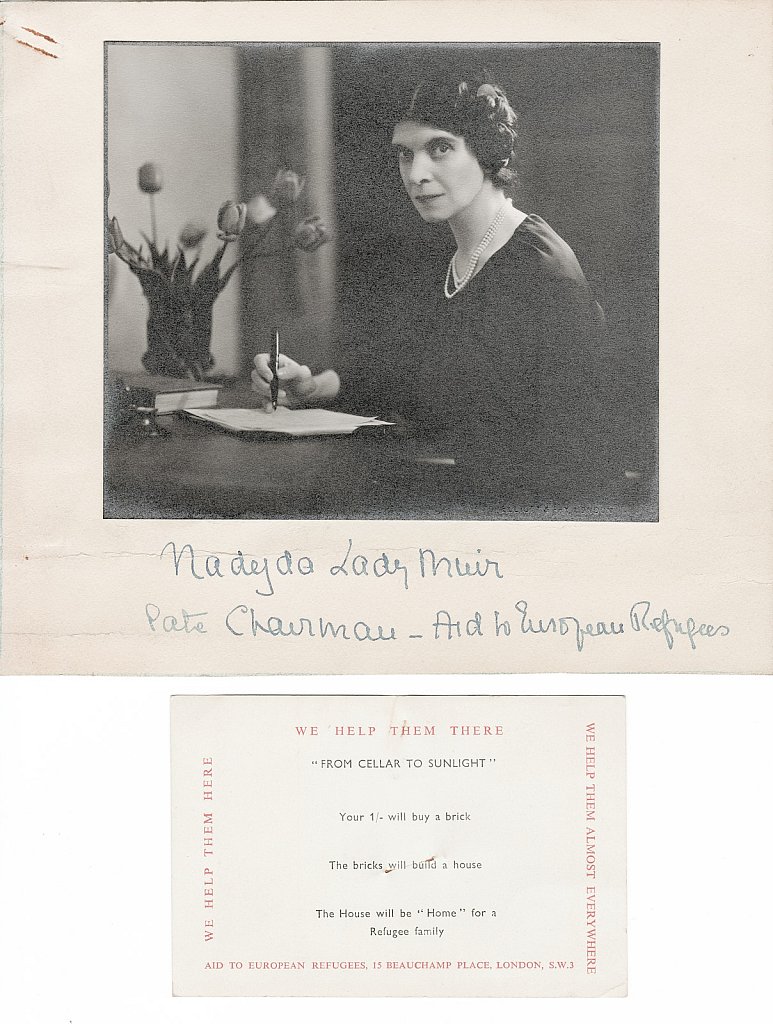 Nadejda Lady Muir
Late Chairman – Aid to European Refugees
WE HELP THEM THERE
WE HELP THEM HERE
WE HELP THEM ALMOST EVERYWHERE
"FROM CELLAR TO SUNLIGHT"
Your 1/- will buy a brick
The bricks will build a house
The House will be "Home" for a
Refugee family
AID TO EUROPEAN REFUGEES, 15 BEAUCHAMP PLACE, LONDON, S.W.3